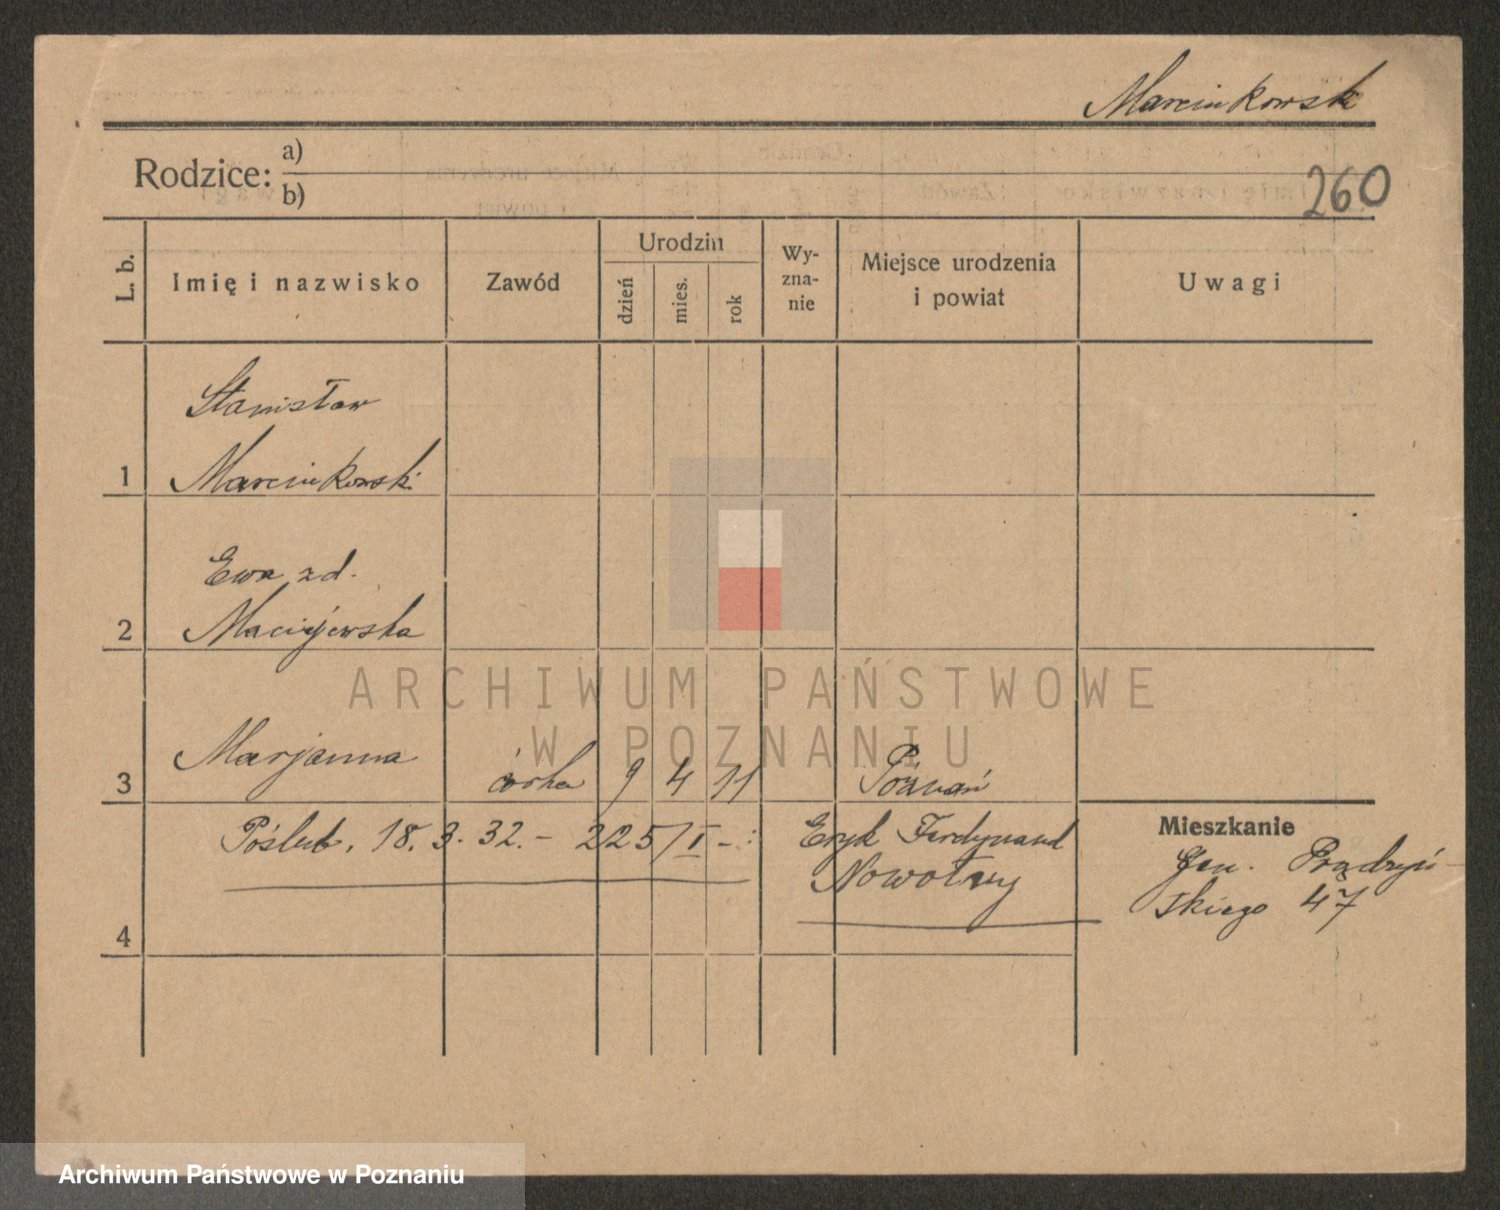 Marcinkowski
Rodzice: a)
b)
260
L. b.
Imię i nazwisko
Zawód
Urodzin
dzień
mies.
rok
Wy-
zna-
nie
Miejsce urodzenia
i powiat
Uwagi
Stanisław
1 Marcinkowski
Ewa zd.
2 Maciejewska
ARCHIWUM PAŃSTWOWE
W POZNANIU
3 Marjanna córka 9 4 11 Poznań
Poślub. 18. 3. 32. - 225/I - Eryk Ferdynand
Nowotny
Mieszkanie
Gen. Prądzyń
skiego 47
4
Archiwum Państwowe w Poznaniu